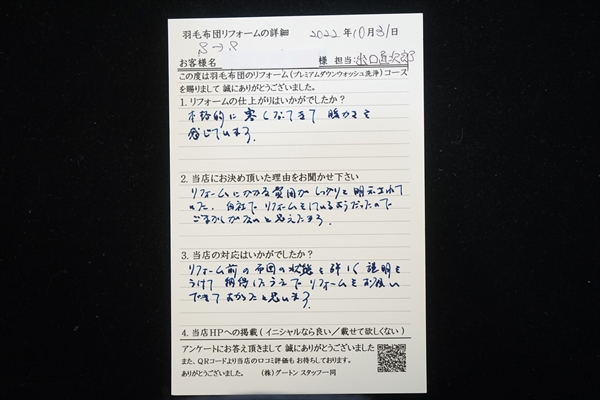 羽毛布団リフォームの詳細 2022年10月31日
S→S
お客様名 様 担当:出口直次郎
この度は羽毛布団のリフォーム(プレミアムダウンウォッシュ洗浄)コース
を賜りまして誠にありがとうございました。
1. リフォームの仕上がりはいかがでしたか?
本格的に寒くなってきて暖かさを
感じています。
2. 当店にお決め頂いた理由をお聞かせ下さい
リフォームにかかる費用がしっかりと明示されて
いた。自社でリフォームをしているようだったので
ごまかしがないと思えたから
3. 当店の対応はいかがでしたか?
リフォーム前の布団の状態を詳しく説明を
うけて納得したうえでリフォームをお願い
できてよかったと思います。
4. 当店HPへの掲載(イニシャルなら良い/載せて欲しくない)
アンケートにお答え頂きまして誠にありがとうございました
また、QRコードより当店の口コミ評価もお待ちしております。
ありがとうございました。 (株)ダートン スタッフ一同